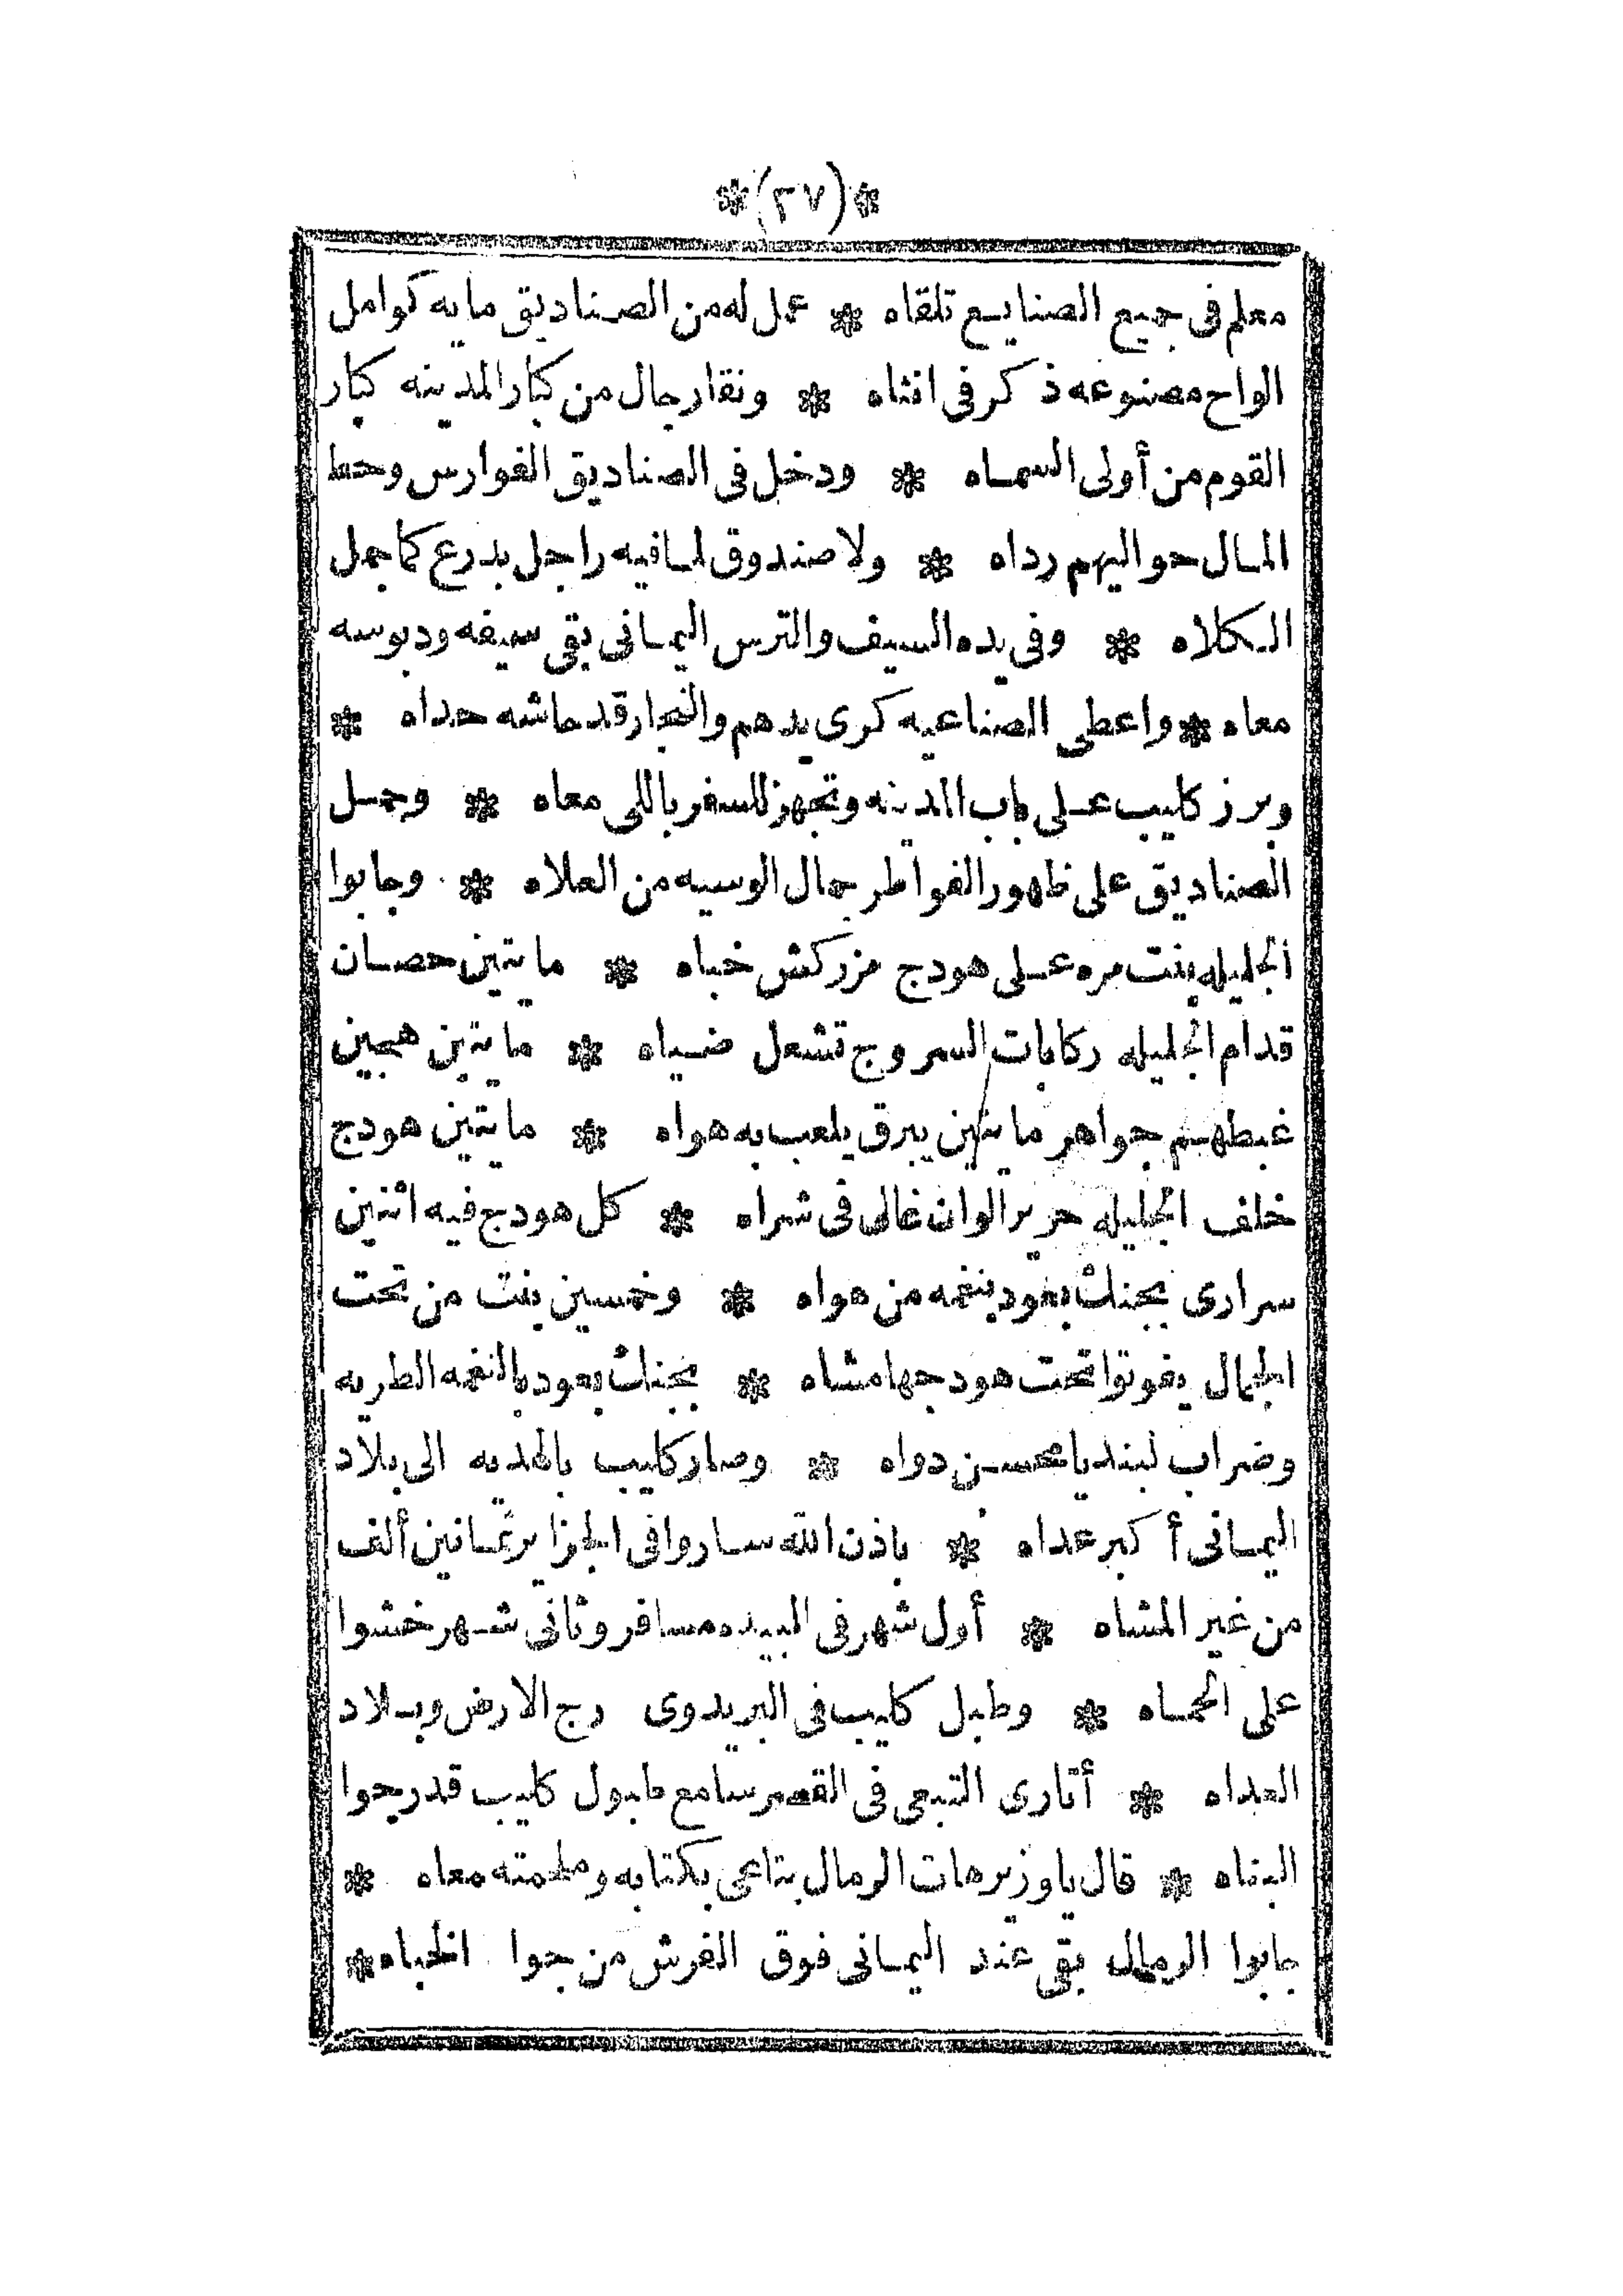 *(٣٧)*
معلم فى جميع الصنايع تلقاه * عمل له من الصناديق مايه كوامل
الواح مصنوعه ذكر فى انثاه * ونقا رجال من كبار المدينه كبار
القوم من أولى السماه * ودخل فى الصناديق الفوارس وحط
المال حواليهم رداه * ولا صندوق لما فيه راجل بدرع كما جمل
الكلاه * وفى يده السيف والترس اليمانى بقى سيفه ودبوسه
معاه * واعطى الصناعيه كرى يدهم والنجار قد حاشه حداه *
وبرز كليب على باب المدينه وتجهز للسفر باللى معاه * وحمل
الصناديق على ظهور الفواطر جمال الوسيه من العلاه * وجابوا
الجليله بنت مره على هودج مزركش خباه * مايتين حصان
قدام الجليله ركابات السروج تشعل ضياه * مايتين هجين
غبطهم جواهر مايتين بيرق يلعب به هواه * مايتين هودج
خلف الجليله حرير الوان غالى فى شراه * كل هودج فيه اثنين
سرارى بجنك بعود بنغمه من هواه * وخمسين بنت من تحت
الجمال يفوتوا تحت هودجها مشاه * بجنك بعود بالنغمه الطربه
وضراب لبند يا محسن دواه * وصار كليب بالهديه الى بلاد
اليمانى أكبر عداه * باذن الله ساروا فى الجزاير ثمانين ألف
من غير المشاه * أول شهر فى البيده مسافر وثانى شهر خشوا
على الحماه * وطبل كليب فى البر يدوى رج الارض وبلاد
العداه * أتارى التبعى فى القصر سامع طبول كليب قد رجوا
البناه * قال يا وزير هات الرمال بتاعى بكتابه وملحمته معاه *
جابوا الرمال بقى عند اليمانى فوق الفرش من جوا الخباه *